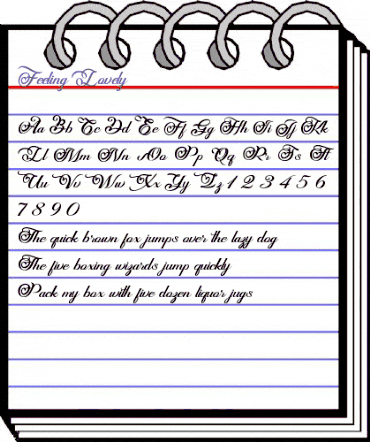 Feeling Lovely
Aa Bb Cc Dd Ee Ff Gg Hh Ii Jj Kk
Ll Mm Nn Oo Pp Qq Rr Ss Tt
Uu Vv Ww Xx Yy Zz 1 2 3 4 5 6
7 8 9 0
The quick brown fox jumps over the lazy dog
The five boxing wizards jump quickly
Pack my box with five dozen liquor jugs